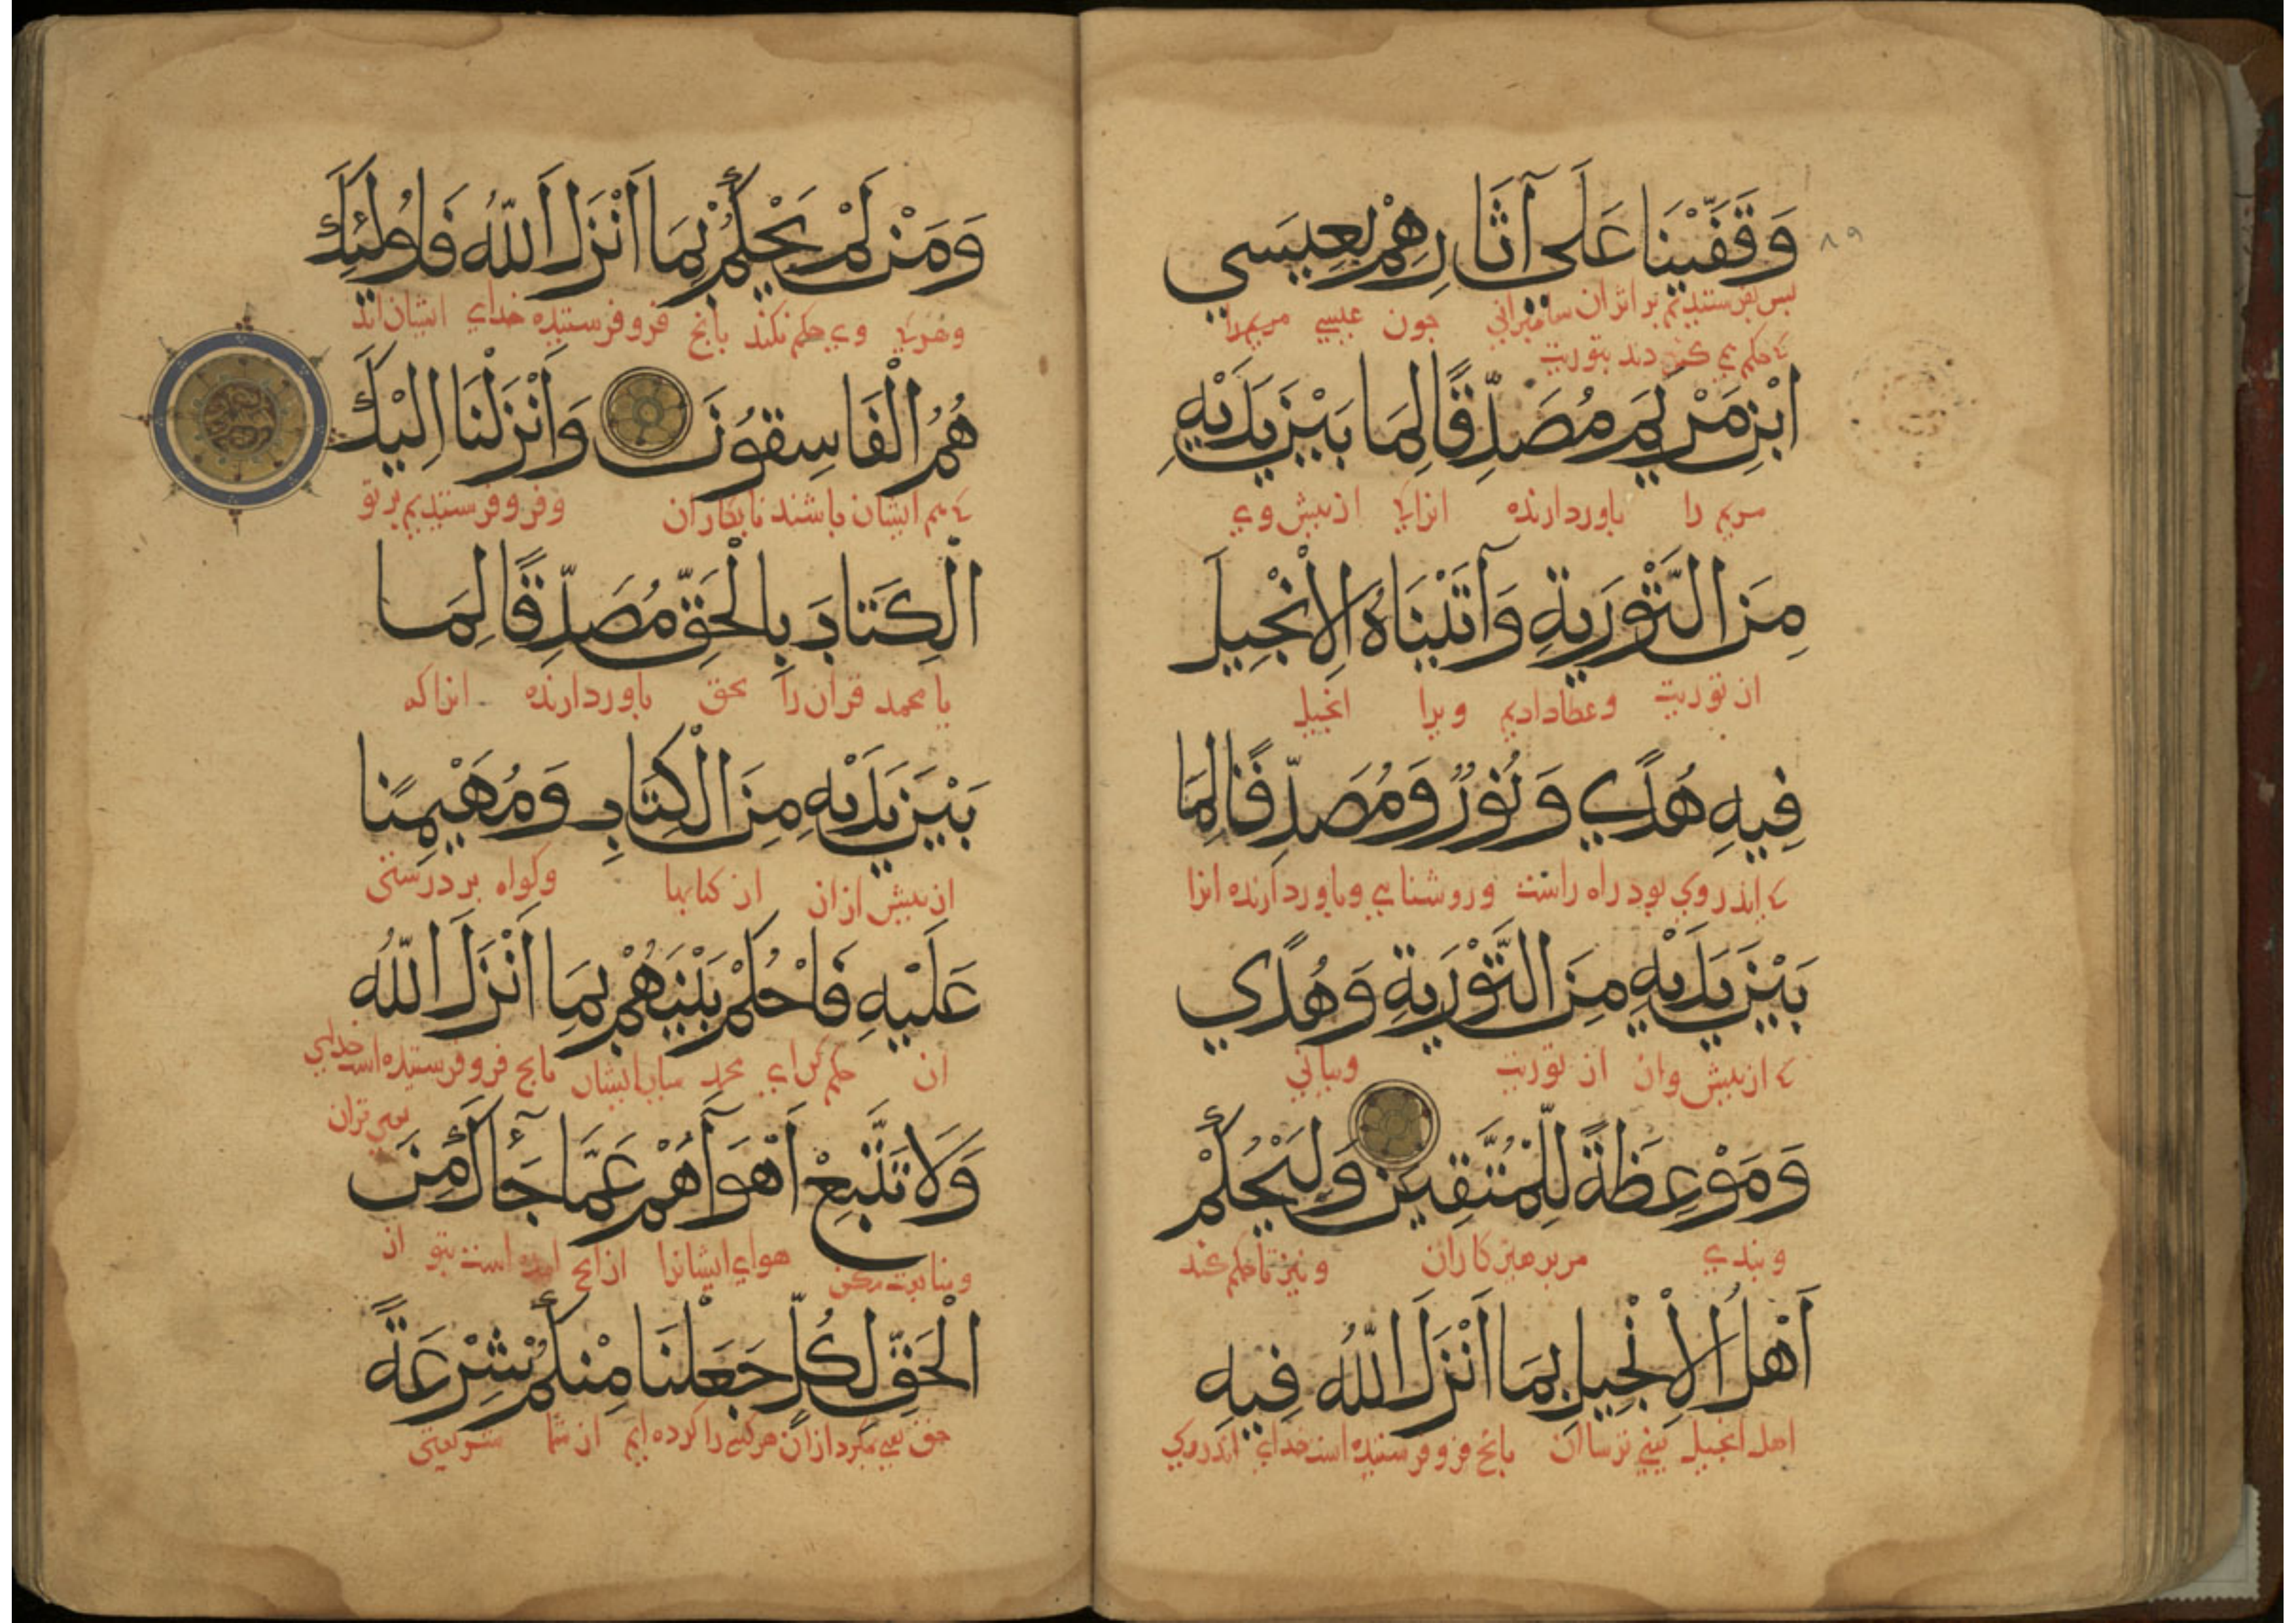 وَقَفَّيْنَا عَلَى آثَارِهِمْ بِعِيسَي
۸۹
بس بفرستيديم بر اثر ان بيامبراني جون عيسي مريم را
كه حكم مي كردند بتوريت
ابْنِ مَرْيَمَ مُصَدِّقًا لِمَا بَيْنَ يَدَيْهِ
مريم را باوردارنده انرا كه از بيش وي
مِنَ التَّوْرَيةِ وَآتَيْنَاهُ الْاِنْجِيلَ
از توريت وعطا داديم ويرا انجيل
فِيهِ هُدًي وَنُوْرٌ وَمُصَدِّقًا لِمَا
كه اندر وي بود راه راست وروشنايي وباوردارنده انرا
بَيْنَ يَدَيْهِ مِنَ التَّوْرَيةِ وَهُدًي
كه از بيش وان از توريت وبياني
وَمَوْعِظَةً لِلْمُتَّقِينَ وَلْيَحْكُمْ
وبندي مر برهيزكاران ونيز تا حكم كند
اَهْلُ الْاِنْجِيلِ بِمَا اَنْزَلَ اللّٰهُ فِيهِ
اهل انجيل يعني ترساان بانج فرو فرستيده است خداي اندر وي
وَمَنْ لَمْ يَحْكُمْ بِمَا اَنْزَلَ اللّٰهُ فَاُولٰئِكَ
وهر كه وي حكم نكند بانج فرو فرستيده خداي ايشان اند
هُمُ الْفَاسِقُوْنَ وَاَنْزَلْنَا اِلَيْكَ
كه هم ايشان باشند نابكاران وفرو فرستيديم بر تو
الْكِتَابَ بِالْحَقِّ مُصَدِّقًا لِمَا
يا محمد قران را بحق باوردارنده انرا كه
بَيْنَ يَدَيْهِ مِنَ الْكِتَابِ وَمُهَيْمِنًا
از بيش از ان از كتابها وكواه بر درستي
عَلَيْهِ فَاحْكُمْ بَيْنَهُمْ بِمَا اَنْزَلَ اللّٰهُ
ان حكم كن اي محمد ميان ايشان بانج فرو فرستيده است خداي
يعني قران
وَلَا تَتَّبِعْ اَهْوَآهُمْ عَمَّا جَآَكَ مِنَ
ومتابعت مكن هواي ايشانرا از انج امده است بتو از
الْحَقِّ لِكُلٍّ جَعَلْنَا مِنْكُمْ شِرْعَةً
حق يعني مكرد از ان هر كسي را كرده ايم از شما شريعتي